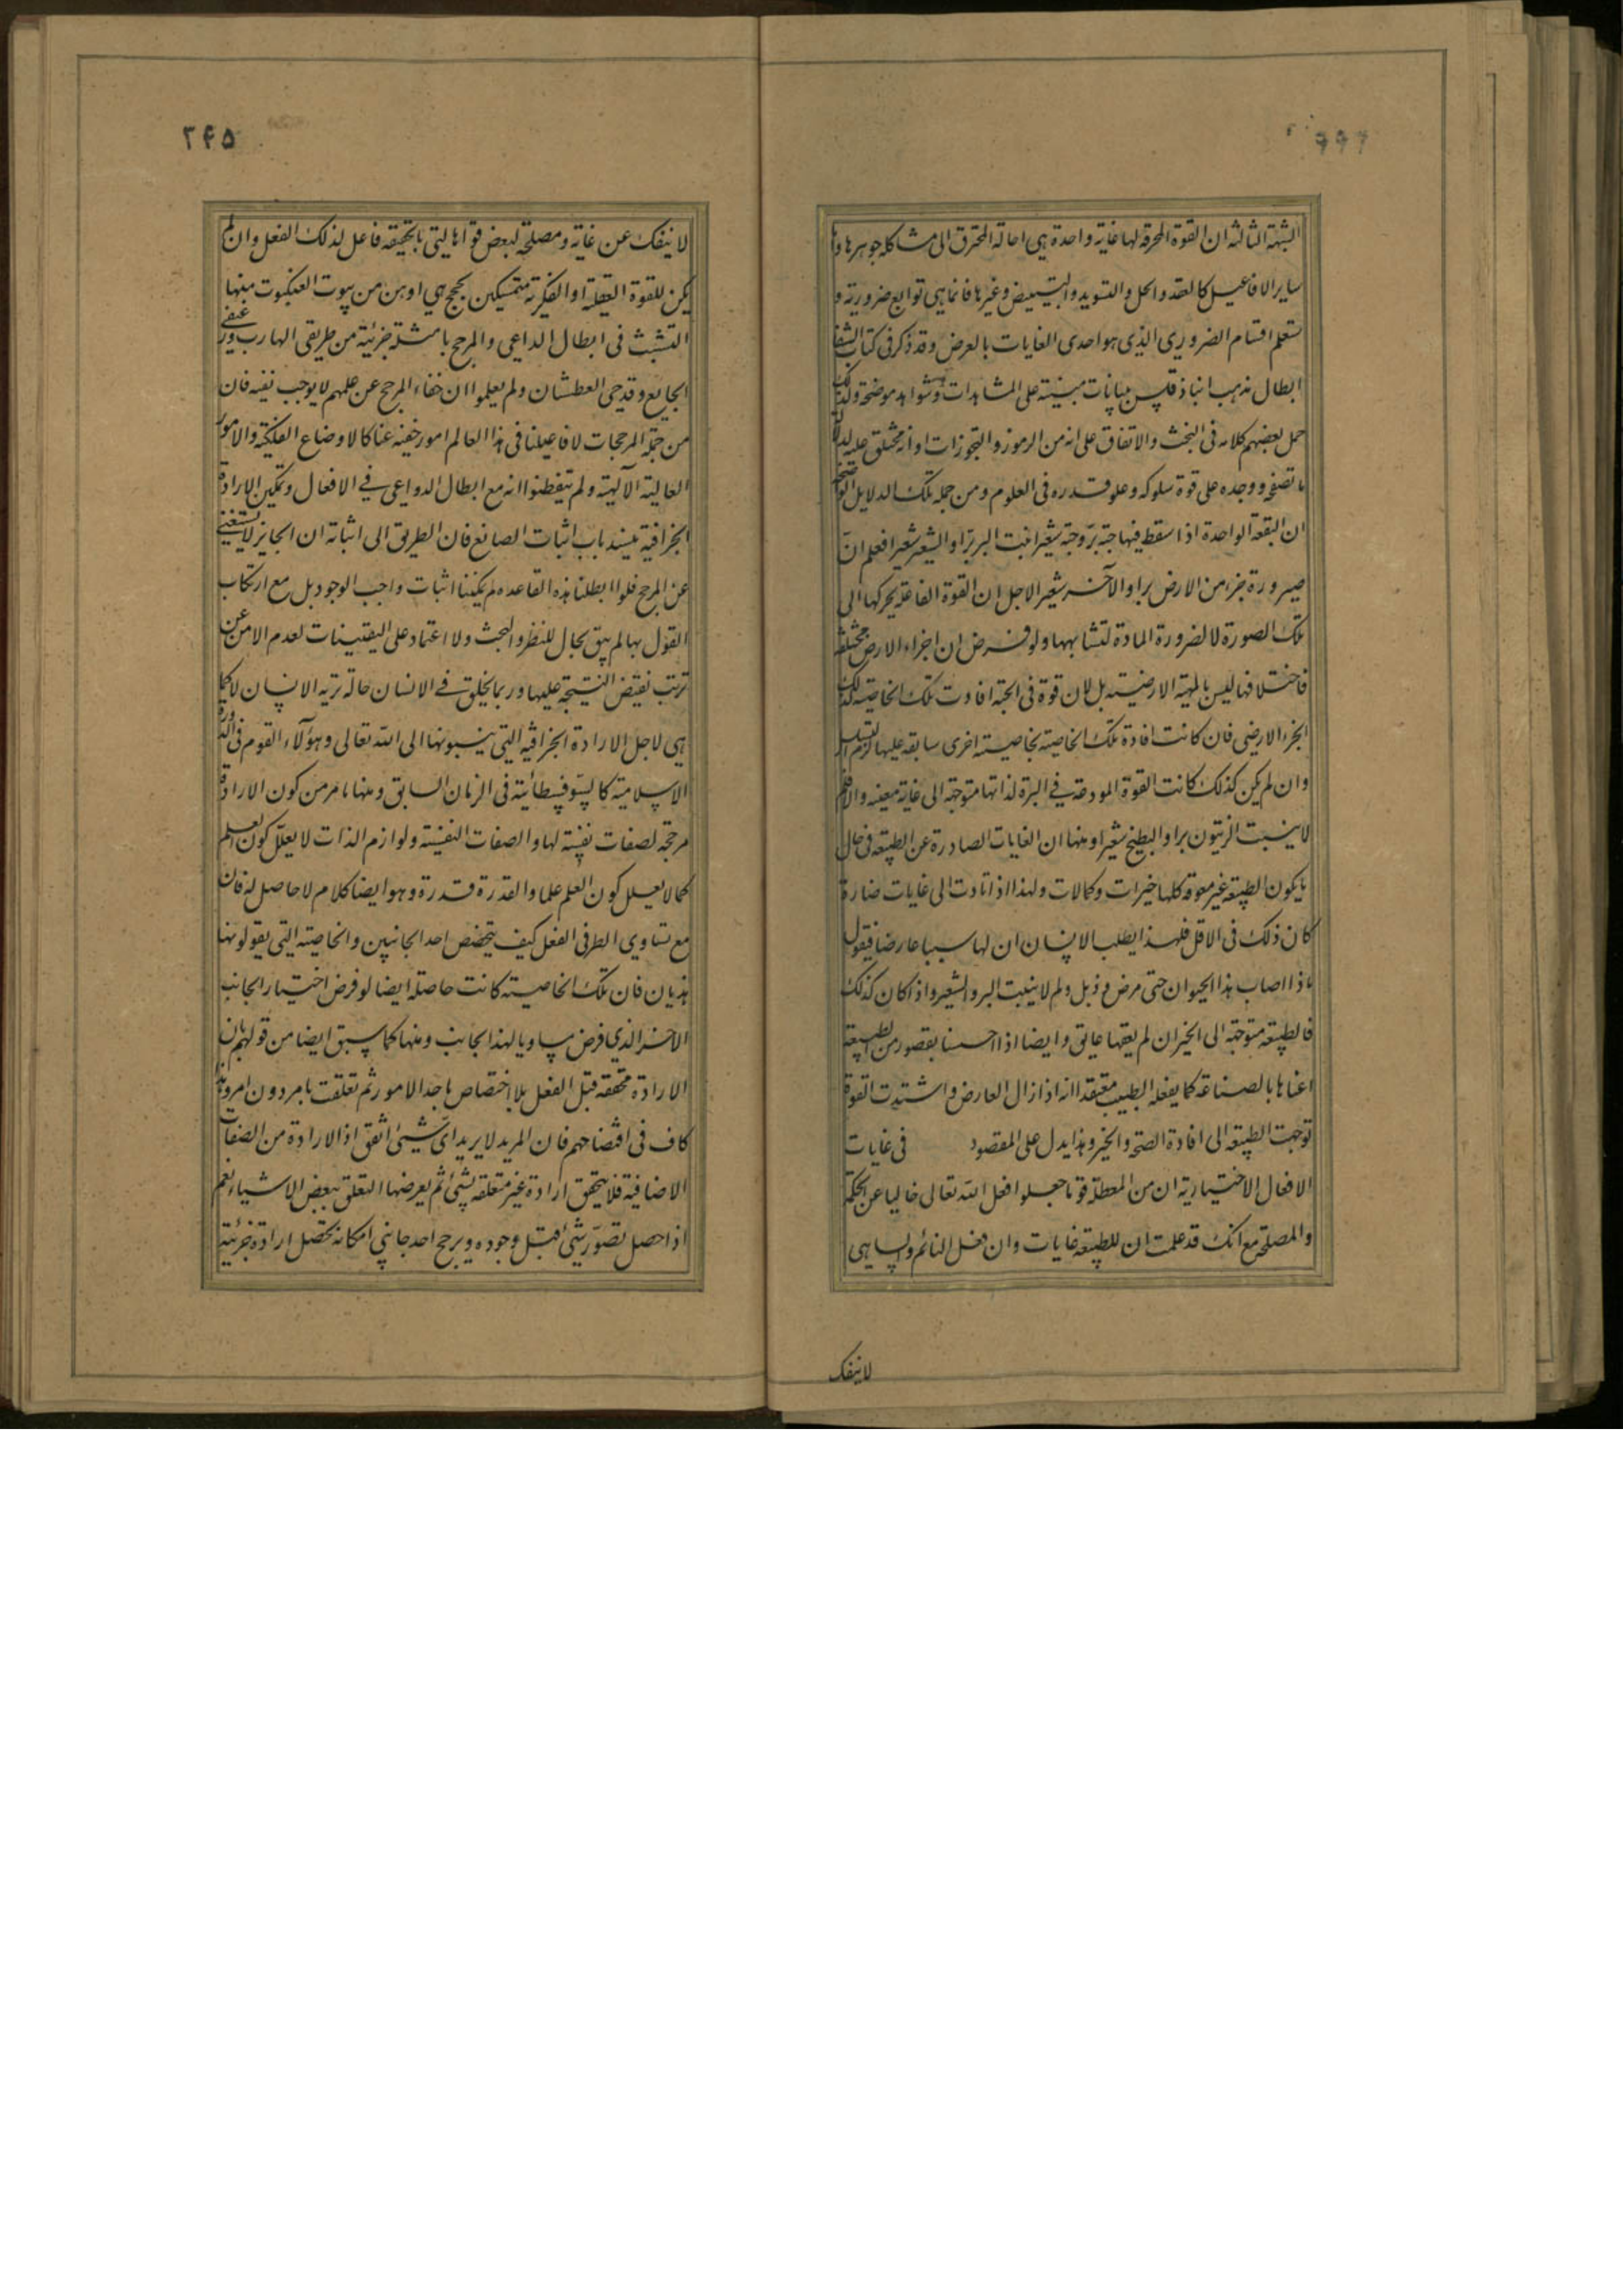 الشبهة الثالثة ان القوة المحرقة لها غاية واحدة هي احالة المحترق الى مشاكلة جوهرها واما
ساير الافاعيل كالعقد والحل والتسويد والتبييض وغيرها فانما هي توابع ضرورية و
ستعلم اقسام الضروري الذي هو احدى الغايات بالعرض وقد ذكر في كتاب الشفا
ابطال مذهب انباذقلس ببيانات مبينة على المشاهدات وشواهد موضحة ولذلك
حمل بعضهم كلامه في البخت والاتفاق على انه من الرموز والتجوزات او انه مختلق عليه لدلالة
ما تصفحه ووجده على قوة سلوكه وعلو قدره في العلوم ومن جملة تلك الدلايل الواضحة
ان البقعة الواحدة اذا سقط فيها حبة بر وحبة شعير انبت البر برا والشعير شعيرا فعلم ان
صيرورة جزء من الارض برا والآخر شعيرا لاجل ان القوة الفاعلة يحركها الى
تلك الصورة لا لضرورة المادة لتشابهها ولو فرض ان اجزاء الارض مختلفة
فاختلافها ليس بالمهية الارضية بل لان قوة في الحبة افادت تلك الخاصية لذلك
الجزء الارضي فان كانت افادة تلك الخاصية بخاصية اخرى سابقة عليها لزم التسلسل
وان لم يكن كذلك كانت القوة المودعة في البرة لذاتها متوجهة الى غاية معينة والا فلم
لا ينبت الزيتون برا والبطيخ شعيرا ومنها ان الغايات الصادرة عن الطبيعة في حال
ما يكون الطبيعة غير معوقة كلها خيرات وكمالات ولهذا اذا تادت الى غايات ضارة
كان ذلك في الاقل فلهذا يطلب الانسان ان لها سببا عارضا فيقول
ماذا اصاب هذا الحيوان حتى مرض وذبل ولم لا ينبت البر والشعير واذا كان كذلك
فالطبيعة متوجهة الى الخير ان لم يعقها عائق وايضا اذا احسسنا بقصور من الطبيعة
اعناها بالصناعة كما يفعله الطبيب معتقدا انه اذا زال العارض واشتدت القوة
توجهت الطبيعة الى افادة الصحة والخير وهذا يدل على المقصود في غايات
الافعال الاختيارية ان من المعطلة قوما جعلوا فعل الله تعالى خاليا عن الحكمة
والمصلحة مع انك قد علمت ان للطبيعة غايات وان فعل النائم والساهي
لا ينفك
۲۴۵
لا ينفك عن غاية ومصلحة لبعض قواها التي بالحقيقة فاعل لذلك الفعل وان لم
يكن للقوة العقلية او الفكرية متمسكين بحجج هي اوهن من بيوت العنكبوت منها
التشبث في ابطال الداعي والمرجح بامثلة جزئية من طريقي الهارب ورغيفي
الجايع وقدحي العطشان ولم يعلموا ان خفاء المرجح عن علمهم لا يوجب نفيه فان
من جملة المرجحات لافاعيلنا في هذا العالم امور خفية عنا كالاوضاع الفلكية والامور
العالية الآلهية ولم يتفطنوا انه مع ابطال الدواعي في الافعال وتمكين الارادة
الجزافية ينسد باب اثبات الصانع فان الطريق الى اثباته ان الجايز لا يستغني
عن المرجح فلو ابطلنا هذه القاعدة لم يمكننا اثبات واجب الوجود بل مع ارتكاب
القول بها لم يبق مجال للنظر والبحث ولا اعتماد على اليقينيات لعدم الامن عن
ترتب نقيض النتيجة عليها وربما يخلق في الانسان حالة تريه الاشياء لا كما
هي لاجل الارادة الجزافية التي ينسبونها الى الله تعالى وهؤلاء القوم في الدورة
الاسلامية كالسوفسطائية في الزمان السابق ومنها ما مر من كون الارادة
مرجحة لصفات نفسية لها والصفات النفسية ولوازم الذات لا يعلل كون العلم
كما لا يعلل كون العلم علما والقدرة قدرة وهو ايضا كلام لا حاصل له فان
مع تساوي الطرفي الفعل كيف يتخصص احد الجانبين والخاصية التي يقولونها
هذيان فان تلك الخاصية كانت حاصلة ايضا لو فرض اختيار الجانب
الآخر الذي فرض مساويا لهذا الجانب ومنها كما سبق ايضا من قولهم بان
الارادة متحققة قبل الفعل بلا اختصاص باحد الامور ثم تعلقت بامر دون امر وهذا
كاف في افتضاحهم فان المريد لا يريد اى شيئ اتفق اذ الارادة من الصفات
الاضافية فلا يتحقق ارادة غير متعلقة بشئ ثم يعرضها التعلق ببعض الاشياء نعم
اذا حصل تصور شئ قبل وجوده ويرجح احد جانبي امكانه تحصل ارادة جزئية